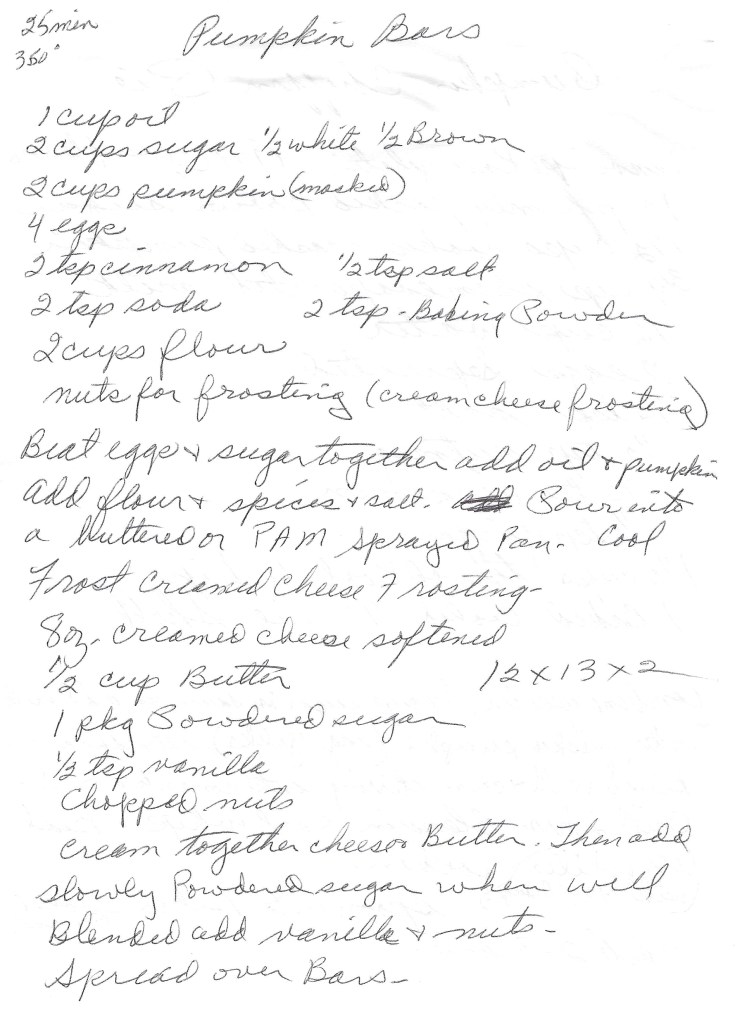 25 min
350°
Pumpkin Bars
1 cup oil
2 cups sugar 1/2 white 1/2 Brown
2 cups pumpkin (masked)
4 eggs
2 tsp cinnamon 1/2 tsp salt
2 tsp soda 2 tsp - Baking Powder
2 cups flour
nuts for frosting (creamcheese frosting)
Beat eggs + sugar together add oil + pumpkin
add flour + spices + salt. Pour into
a buttered or PAM sprayed Pan - Cool
Frost creamed cheese Frosting -
8 oz. creamed cheese softened
1/2 cup Butter 12 x 13 x 2
1 pkg Powdered sugar
1/2 tsp vanilla
Chopped nuts
cream together cheese + Butter. Then add
slowly Powdered sugar when well
Blended add vanilla + nuts -
Spread over Bars -